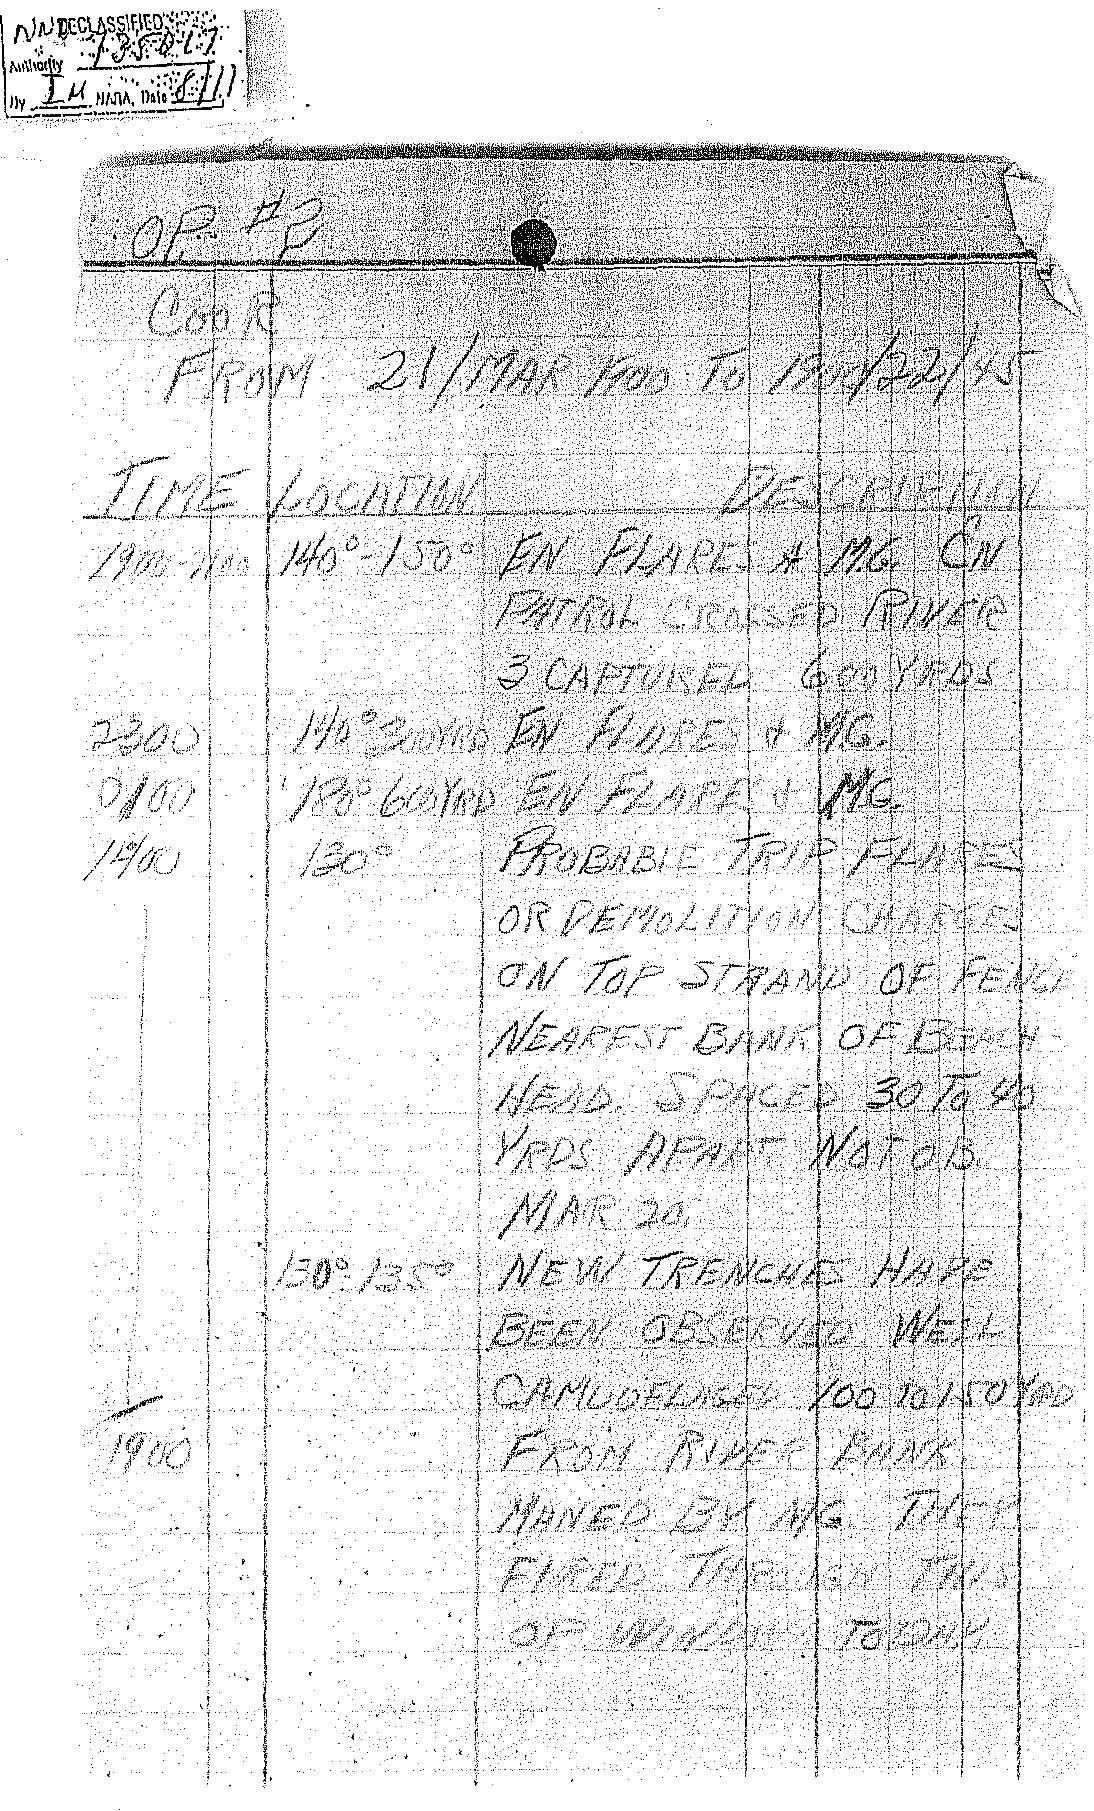 DECLASSIFIED
Authority NND 735017
By IM NARA, Date 8/11
O.P. #2
COOK
FROM 21/MAR 1900 TO 1900/22/45
TIME LOCATION DESCRIPTION
1900- 140°-150° EN FLARES & M.G. ON
PATROL CROSSED RIVER
3 CAPTURED 600 YRDS
2300 140° 300YRD EN FLARES & MG.
0100 180° 600YRD EN FLARE & MG.
1400 130° PROBABLE TRIP FLARES
OR DEMOLITION CHARGES
ON TOP STRAND OF FENCE
NEAREST BANK OF BEACH-
HEAD. SPACED 30 TO 40
YRDS APART NOT OB.
MAR 20.
130°-135° NEW TRENCHES HAVE
BEEN OBSERVED WELL
CAMUOFLAGED 100 TO 150 YRD
1900 FROM RIVER BANK.
MANED BY MG. THEY
FIRED THROUGH THIS
OP TODAY